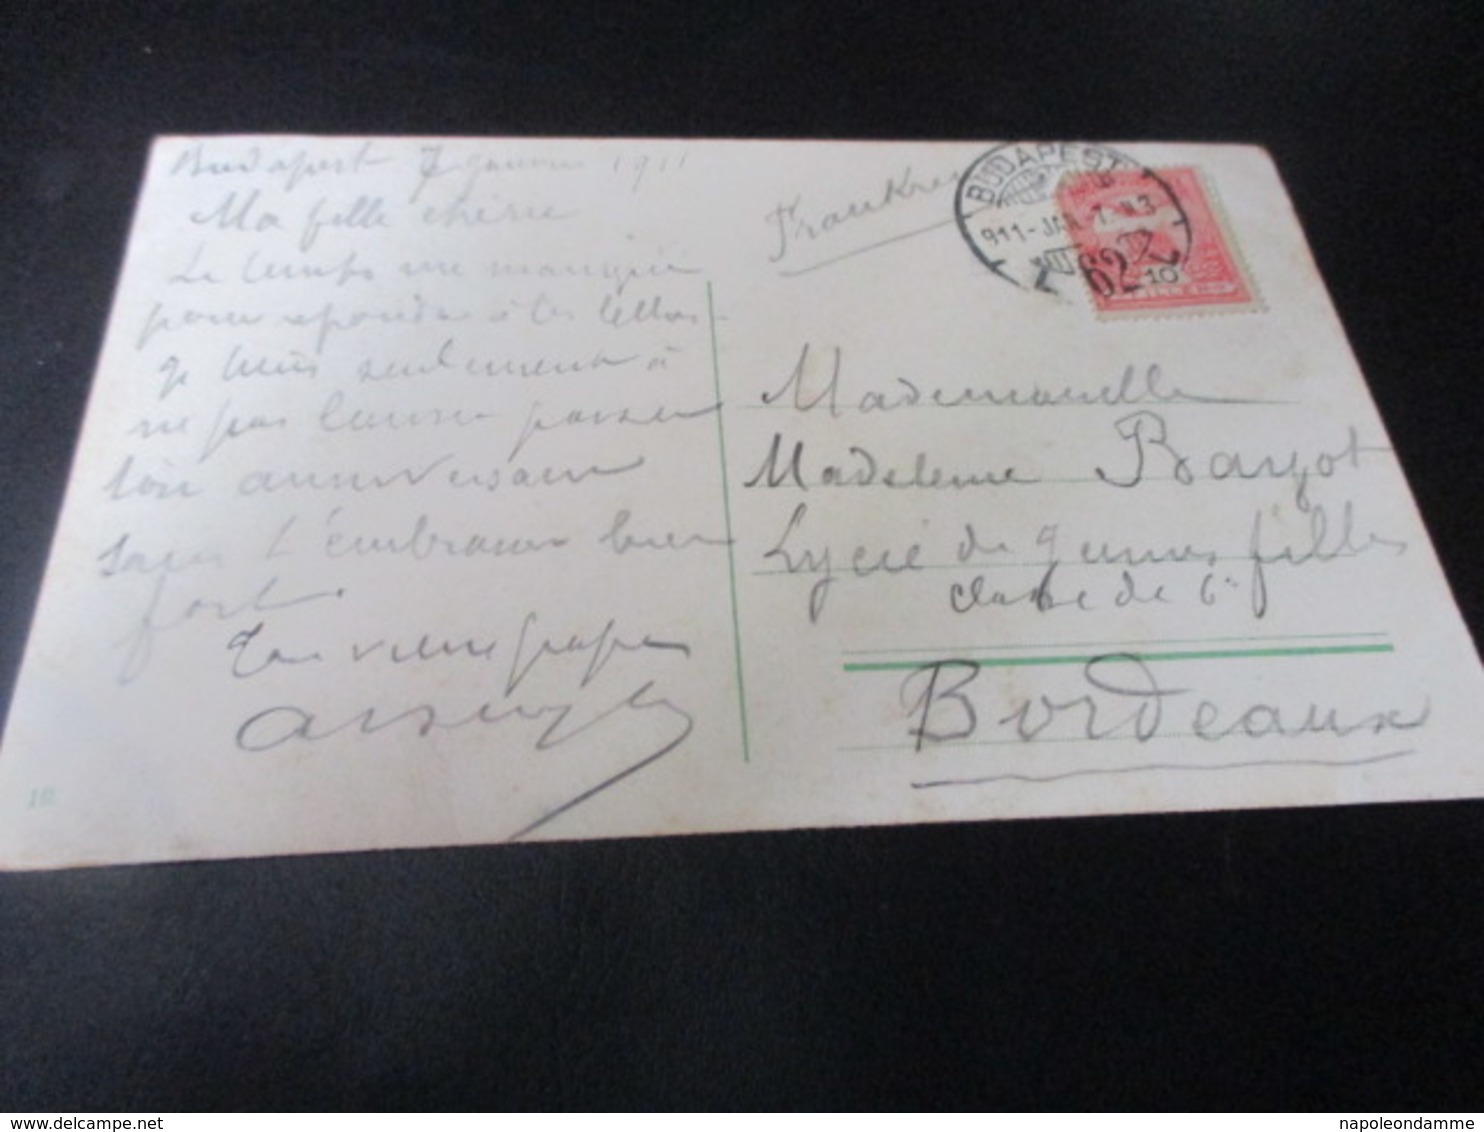 Budapest 7 janvier 1911
Ma fille chérie
Le temps me manque
pour répondre à tes lettres
je tiens seulement à
ne pas laisser passer
ton anniversaire
sans t'embrasser bien
fort.
Ton vieux papa
10
Frankrei
BUDAPEST
911-JAN-7
62
10
Mademoiselle
Madeleine Bayot
Lycée de jeunes filles
classe de 6e
Bordeaux
delcampe.net
napoleondamme